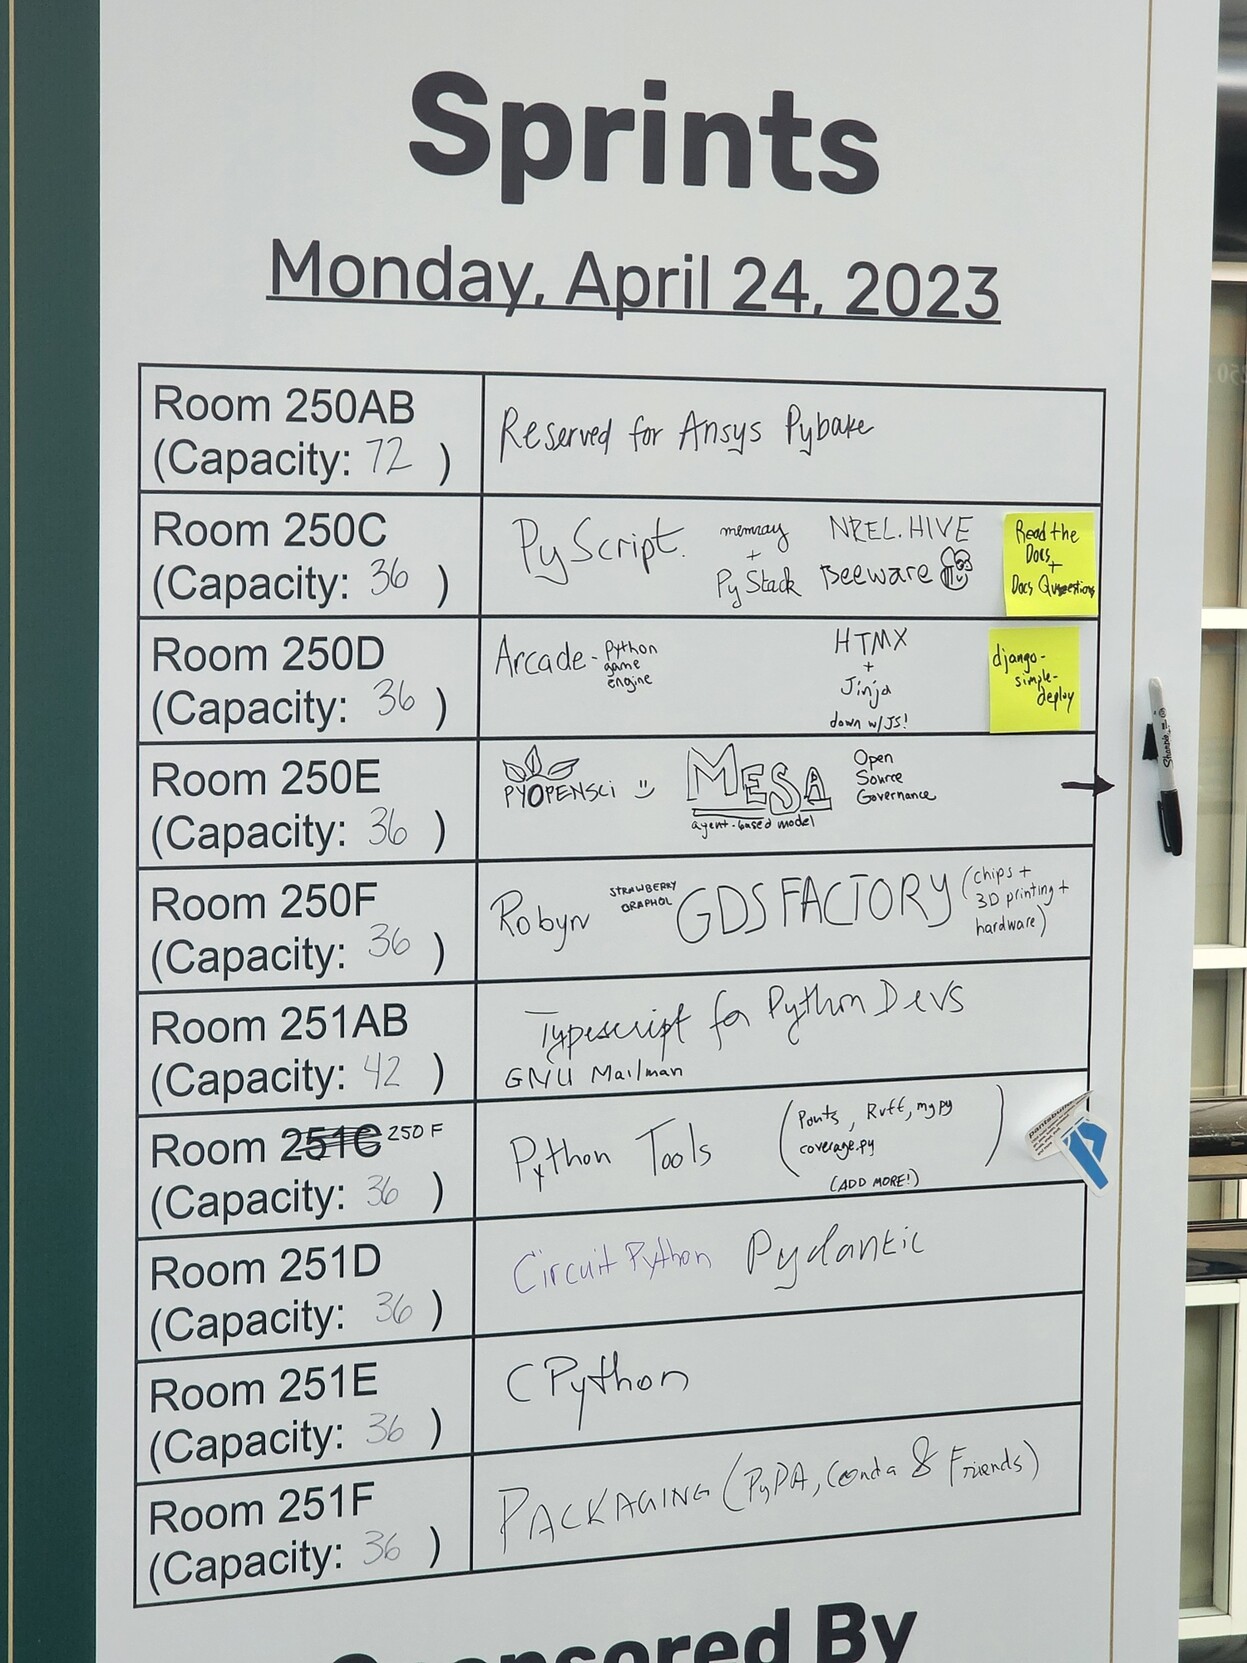 Sprints
Monday, April 24, 2023
Room 250AB
(Capacity: 72 )
Reserved for Ansys Pybake
Room 250C
(Capacity: 36 )
PyScript.
memray
+
PyStack
NREL.HIVE
Beeware
Read the
Docs
+
Docs Questions
Room 250D
(Capacity: 36 )
Arcade - Python
game
engine
HTMX
+
Jinja
down w/JS!
django-
simple-
deploy
Room 250E
(Capacity: 36 )
PYOPENSCI
MESA
agent-based model
Open
Source
Governance
Room 250F
(Capacity: 36 )
Robyn
STRAWBERRY
GRAPHQL
GDS FACTORY
(chips +
3D printing +
hardware)
Room 251AB
(Capacity: 42 )
Typescript for Python Devs
GNU Mailman
Room 251C 250 F
(Capacity: 36 )
Python Tools
(Pants, Ruff, mypy
coverage.py
(ADD MORE!)
)
pantsbuild
Room 251D
(Capacity: 36 )
Circuit Python Pydantic
Room 251E
(Capacity: 36 )
CPython
Room 251F
(Capacity: 36 )
PACKAGING (PyPA, Conda & Friends)
Sponsored By
Sharpie